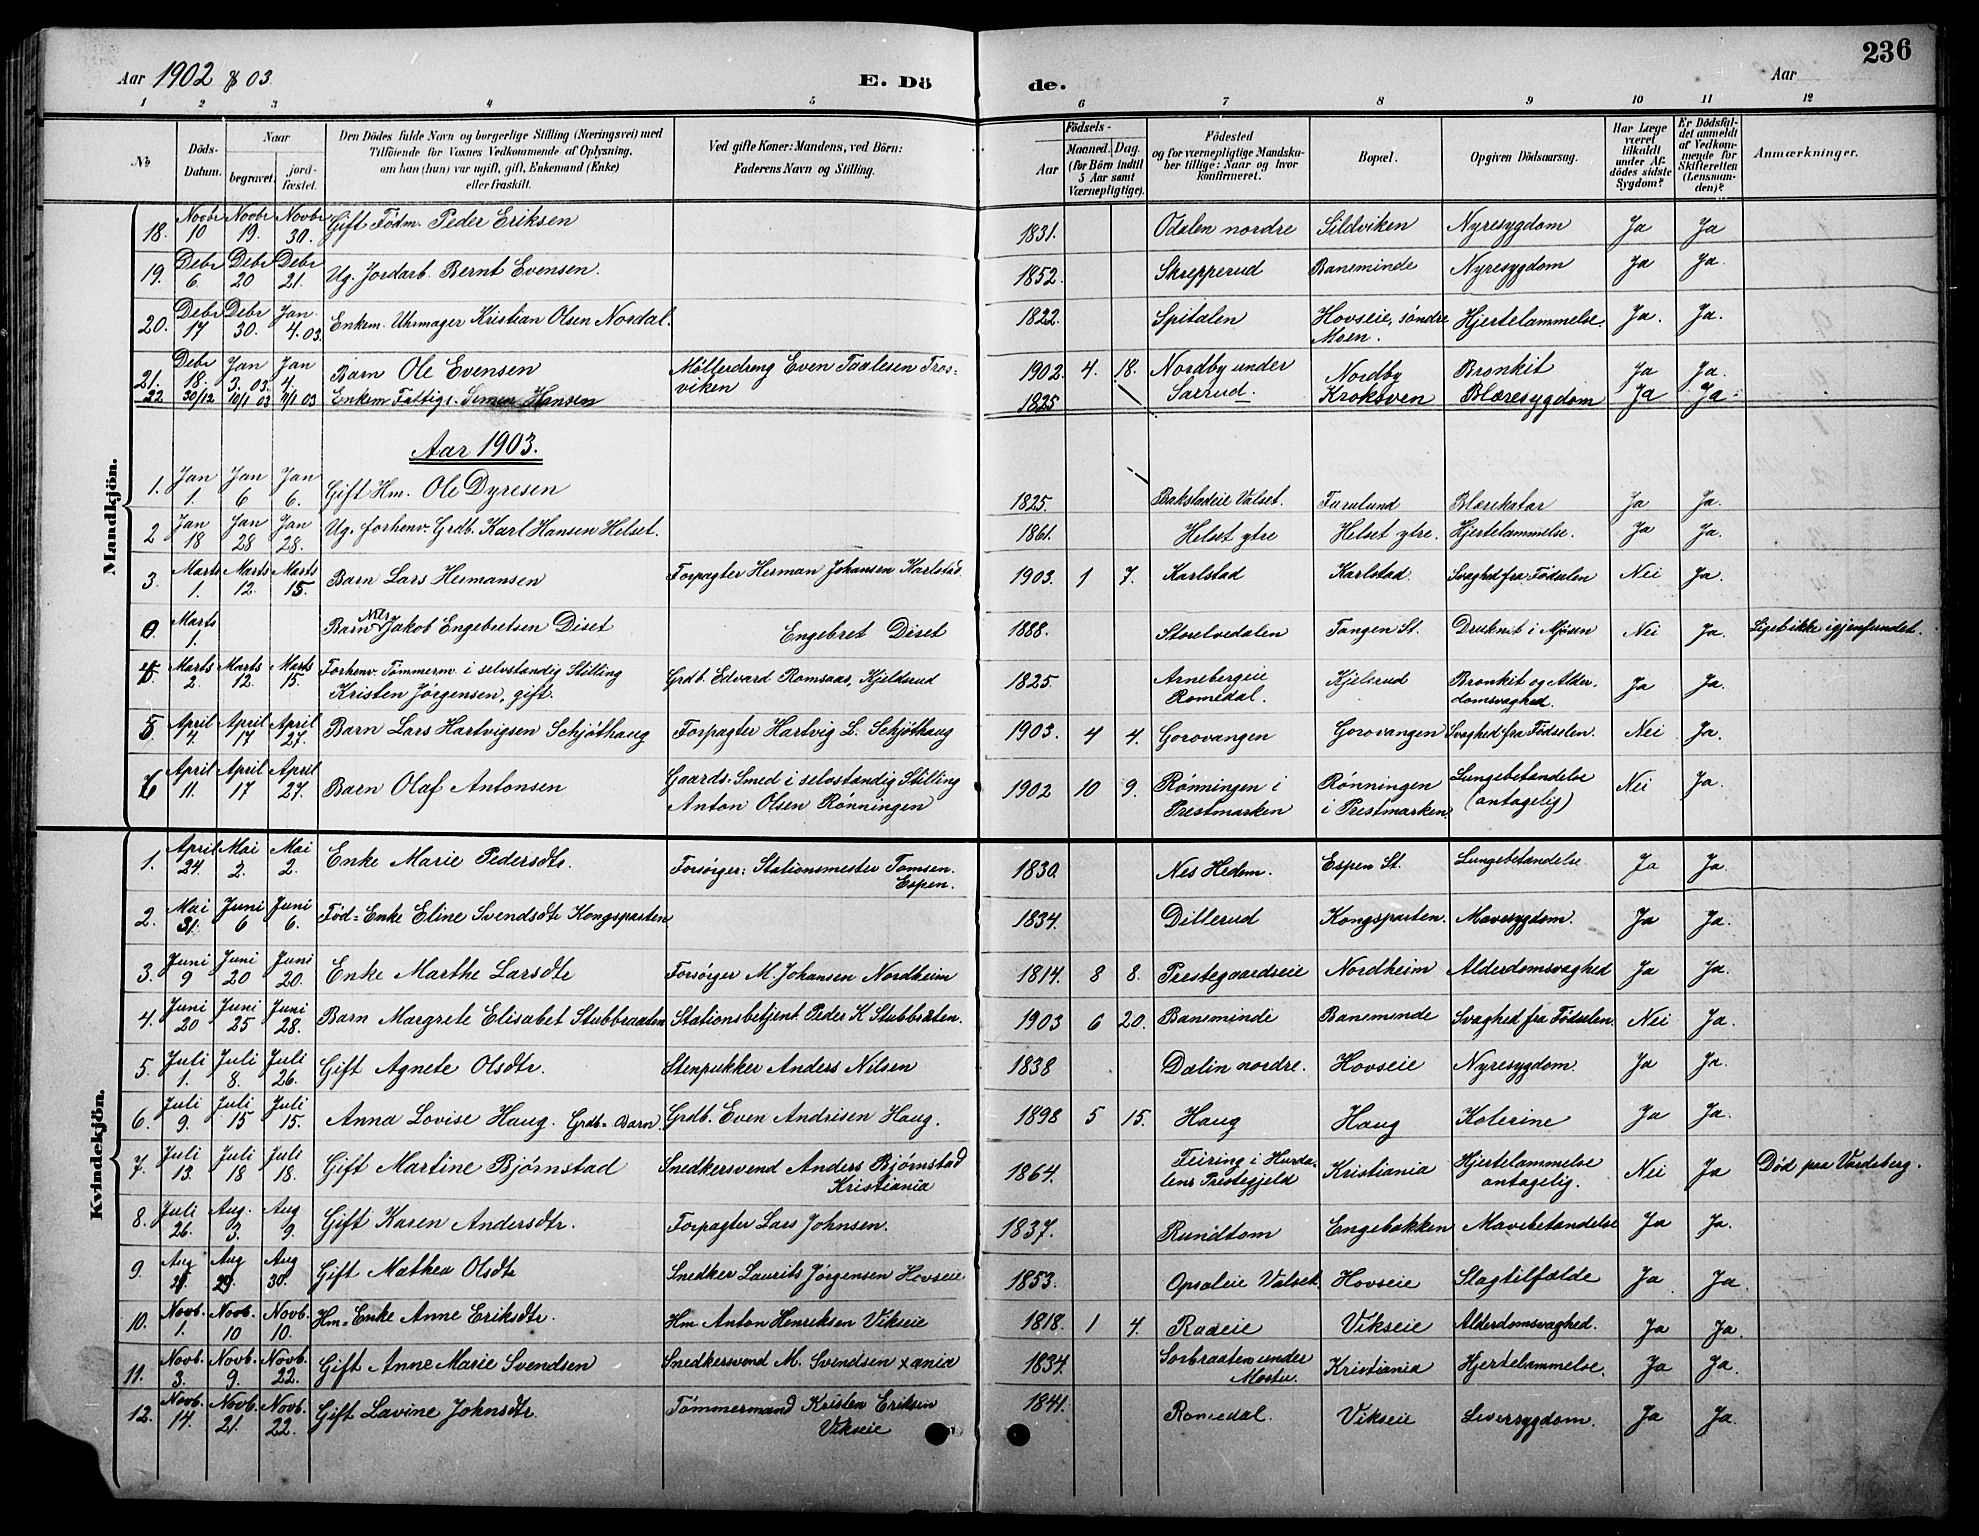 Aar 1902 & 03.
E. Dö
de.
Aar
236
1 2 3 4 5 6 7 8 9 10 11 12
No
Döds-Datum.
Naar
begravet.
jordfæstet.
Den Dödes fulde Navn og borgerlige Stilling (Næringsvei) med
Tilföiende for Voxnes Vedkommende af Oplysning,
om han (hun) var ugift, gift, Enkemand (Enke)
eller fraskilt.
Ved gifte Koner: Mandens, ved Börn:
Faderens Navn og Stilling.
Födsels-
Aar
Maaned. Dag
(for Börn indtil 5 Aar samt Værnepligtige).
Födested
og for værnepligtige Mandskaber tillige: Naar og hvor konfirmeret.
Bopæl.
Opgiven Dödsaarsag.
Har Læge været tilkaldt under Afdödes sidste Sygdom?
Er Dödsfaldet anmeldt af Vedkommende for Skifteretten (Lensmanden)?
Anmærkninger.
Mandkjön.
18. Novbr 10 Novbr 19. Novbr 30. Gift Födm. Peder Eriksen 1831. Odalen nordre Sildviken Nyresygdom Ja Ja
19. Debr 6. Debr 20 Debr 21. Ug. Jordarb. Bernt Evensen. 1852. Skrepperud Baneminde Nyresygdom Ja Ja.
20. Debr 17 Debr 30. Jan. 4. 03. Enkem. Uhrmager Kristian Olsen Nordal. 1822. Spitalen Hovseie, söndre Moen. Hjertelammelse. Ja. Ja.
21. Debr 18. Jan 3. 03. Jan 4. Barn Ole Evensen Möllerdreng Even Taalesen Trosviken 1902. 4. 18. Nordby under Saerud. Nordby Bronkit Ja Ja.
22 30/12 10/1 03 11/1 03 Enkem Fattigl. Simen Hansen 1825 Kroksven Blæresygdom Ja Ja.
Aar 1903.
1. Jan 1. Jan 6 Jan 6. Gift Hm. Ole Dyresen 1825. Bakstadeie Valset. Furulund Blærekatar Ja Ja.
2 Jan 18 Jan 28 Jan 28. Ug. forhenv. Grdb. Karl Hansen Helset. 1861. Helset ytre Helset ytre. Hjertelammelse. Ja Ja.
3. Marts 1. Marts 12. Marts 15. Barn Lars Hermansen Forpagter Herman Johansen Karlstad. 1903. 1 7. Karlstad Karlstad. Svaghed fra Födselen Nei Ja.
0. Marts 1. Barn Nils Jakob Engebretsen Diset Engebret Diset 1888. Storelvedalen Tangen St. Druknet i Mjösen Nei Ja. Liget ikke igjenfundet.
4. Marts 2. Marts 12. Marts 15. Forhenv. Tömmerm. i selvstandig Stilling
Kristen Jörgensen, gift. Grdb. Edvard Romsaas, Kjelderud 1825. Arnebergeie Romedal. Kjelerud Bronkit og Alderdomsvaghed. Ja Ja.
5. April 4. April 17 April 27. Barn Lars Hartvigsen Schjöthaug Forpagter Hartvig L. Schjöthaug 1903. 4 4. Gorovangen Gorovangen Svaghed fra Födselen. Nei Ja.
6 April 11. April 17 April 27. Barn Olaf Antonsen Gaards-Smed i selvstandig Stilling
Anton Olsen Rönningen 1902 10 9. Rönningen i Prestmarken Rönningen i Prestmarken Lungebetandelse (antagelig) Nei Ja.
Kvindekjön.
1. April 24. Mai 2. Mai 2. Enke Marie Pedersdtr. Forsörger: Stationsmester Tomsen. Espen. 1830. Nes Hedem. Espen St. Lungebetandelse. Ja Ja.
2. Mai 31. Juni 6 Juni 6. Föd-Enke Eline Svendsdtr Kongsparten 1834. Dillerud Kongsparten. Mavesygdom. Ja Ja.
3. Juni 9 Juni 20 Juni 20. Enke Marthe Larsdtr Forsörger M. Johansen Nordheim 1814. 8 8. Prestegaardseie Nordheim Alderdomsvaghed Ja Ja.
4. Juni 20 Juni 25 Juni 28. Barn Margrete Elisabet Stubbraaten Stationsbetjent Peder K Stubbråten. 1903 6 20. Baneminde Baneminde Svaghed fra Födselen. Nei Ja.
5. Juli 1. Juli 8. Juli 26. Gift Agnete Olsdtr. Stenpukker Anders Nilsen 1838 Dalin nordre. Hovseie Nyresygdom. Ja Ja.
6. Juli 9. Juli 15 Juli 15. Anna Lovise Haug. Grdb-Barn. Grdb. Even Andrisen Haug. 1898 5 15. Haug Haug Kolerine Ja Ja.
7. Juli 13. Juli 18 Juli 18. Gift Martine Björnstad Snedkersvend Anders Björnstad
Kristiania 1864. Feiring i Hurdalens Prestegjeld Kristiania Hjertelammelse antagelig. Nei Ja Död paa Vardeberg.
8. Juli 26. Aug. 3. Aug 9. Gift Karen Andersdtr. Forpagter Lars Johnsen. 1837. Rundtom Engebakken Mavebetandelse Ja Ja.
9. Aug Aug 29. Aug 30. Gift Mathea Olsdtr Snedker Laurits Jörgensen Hovseie 1853. Opsaleie Valset Hovseie Slagtilfælde Ja Ja.
10. Novb. 1. Novb. 10 Novb. 10. Hm-Enke Anne Eriksdtr. Hm. Anton Henriksen Vikseie 1818. 1 4. Radeie Vikseie Alderdomsvaghed. Ja Ja.
11. Novb. 3. Novb. 9. Novb. 22. Gift Anne Marie Svendsen Snedkersvend M. Svendsen Xania 1834. Sorbraaten under Mostu. Kristiania Hjertelammelse. Ja Ja.
12. Novb. 14. Novb. 21. Novb. 22. Gift Lavine Johnsdtr. Tömmermand Kristen Eriksen
Vikseie 1841. Romedal. Vikseie Leversygdom. Ja Ja.